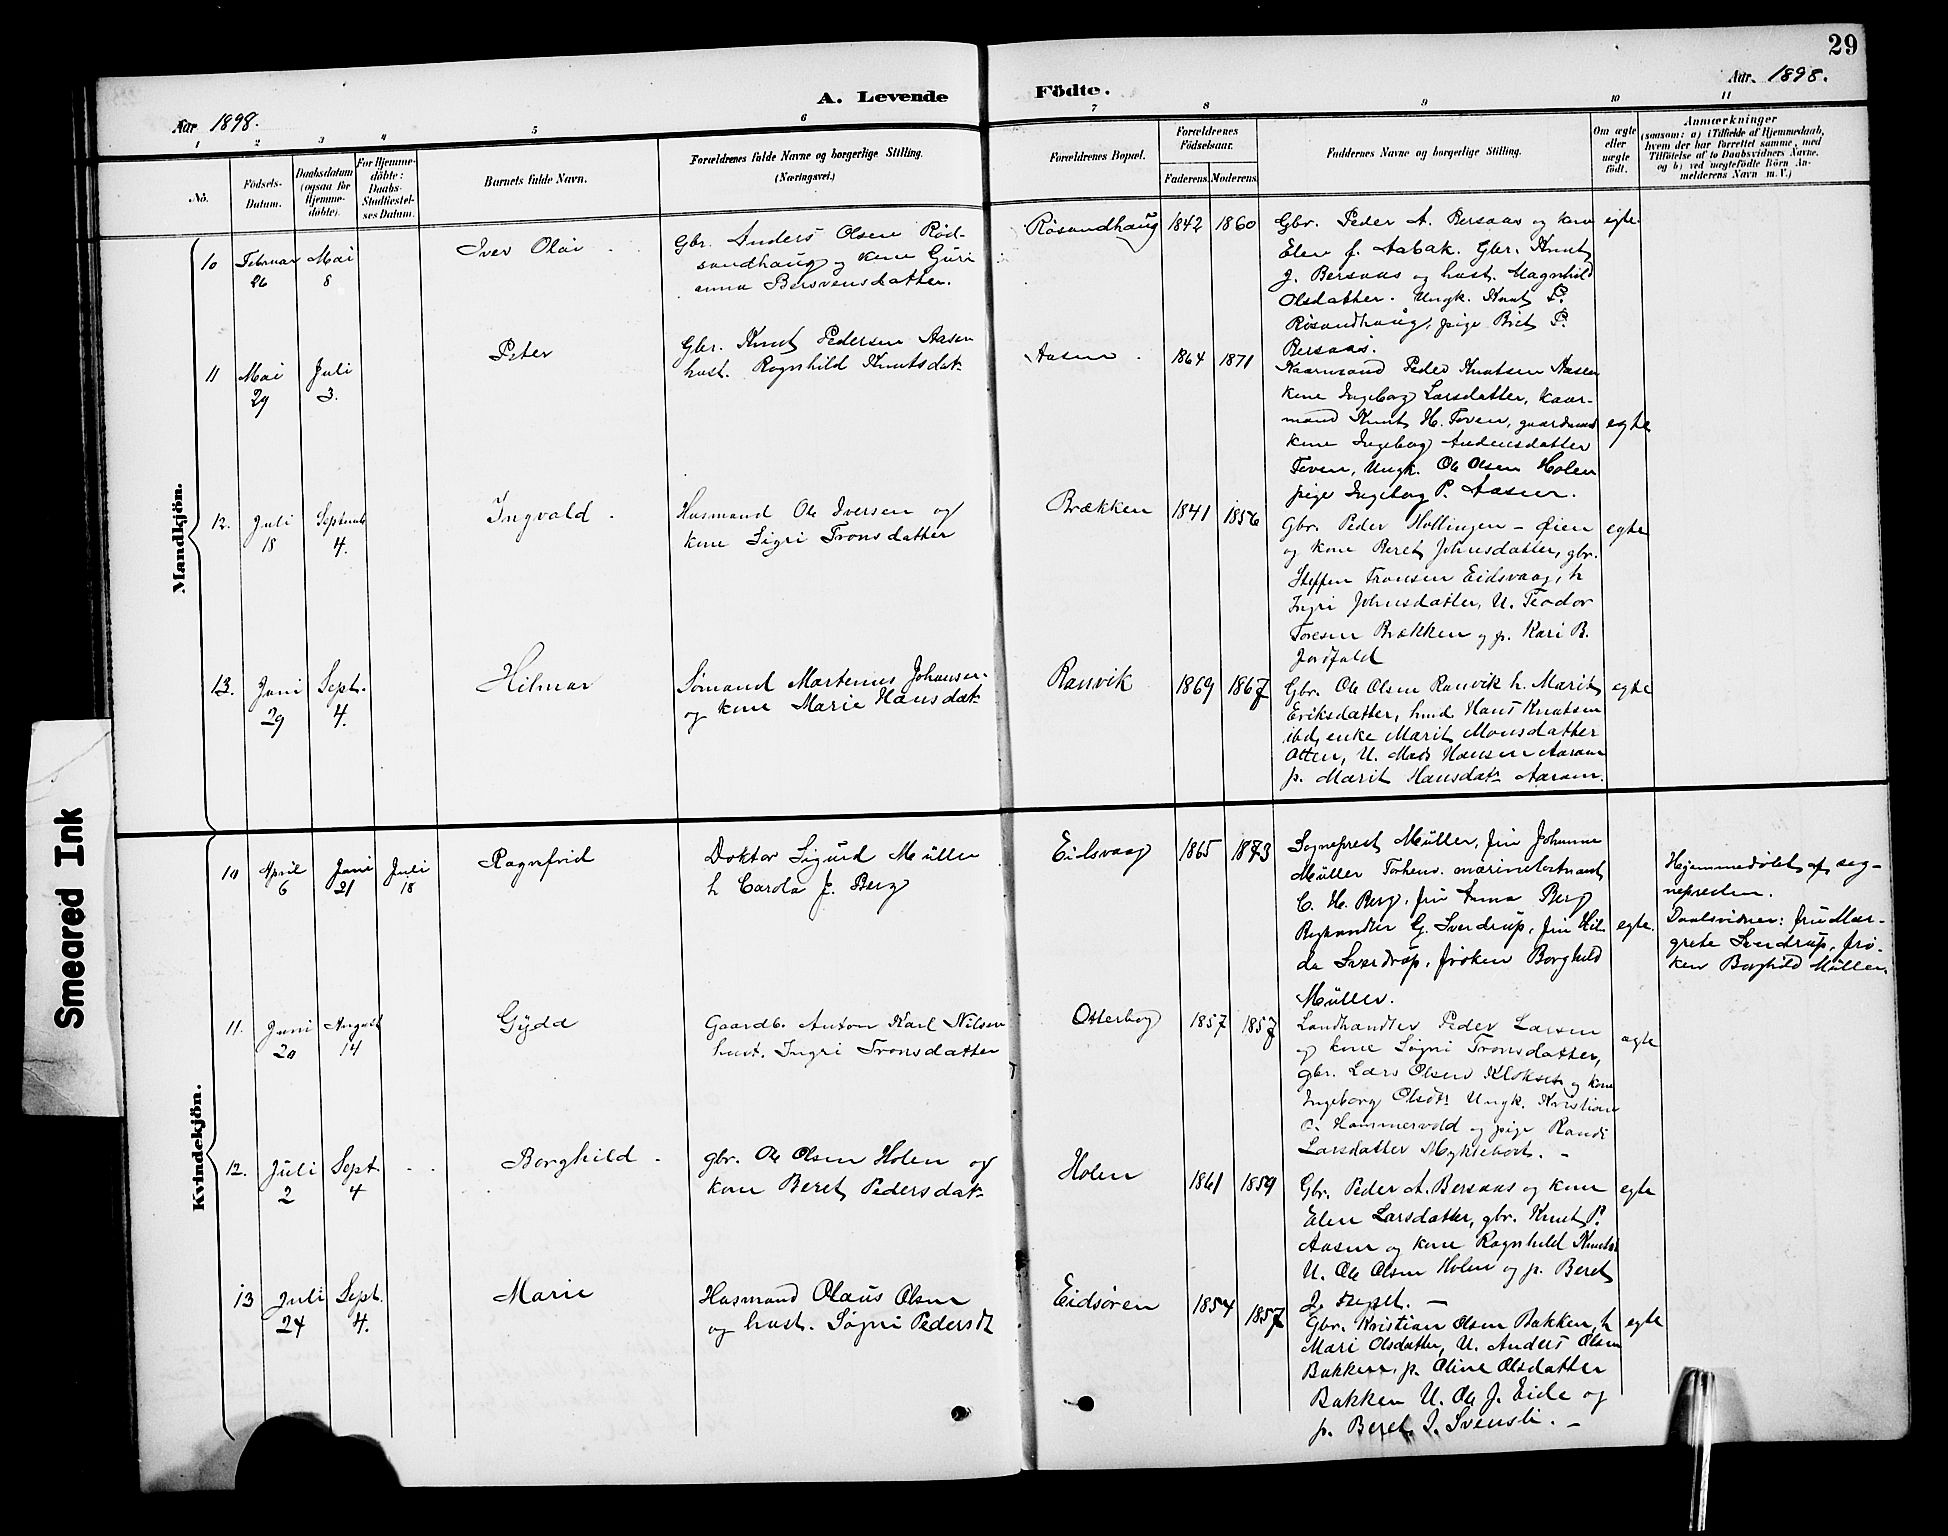 29
Aar 1898.
A. Levende Födte.
Aar. 1898.
1 2 3 4 5 6 7 8 9 10 11
No.
Födsels-
Datum.
Daabsdatum
(ogsaa for
Hjemme-
döbte).
For Hjemme-
döbte:
Daabs-
Stadfæstel-
ses Datum.
Barnets fulde Navn.
Forældrenes fulde Navne og borgerlige Stilling.
(Næringsvei.)
Forældrenes Bopæl.
Forældrenes
Födselsaar.
Faderens. Moderens.
Faddernes Navne og borgerlige Stilling.
Om ægte
eller
uægte
födt.
Anmærkninger
(saasom: a) i Tilfælde af Hjemmedaab,
hvem der har forrettet samme, med
Tilföielse af to Daabsvidners Navne,
og b) ved uægtefödte Börn An-
melderens Navn m. V.)
Mandkjön.
10 Februar 26
Mai 8
Iver Olai
Gbr. Anders Olsen Rød-
sandhaug og kone Guri
anna Bersvensdatter.
Røsandhaug 1842 1860
Gbr. Peder A. Bersaas og kone
Elen f. Aabak. Gbr. Knut
J. Bersaas og hust. Magnhild
Olsdatter. Ungk. Knut P.
Røsandhaug, pige Brit P.
Bersaas.
egte
11 Mai 29
Juli 3.
Peter
Gbr. Knut Pedersen Aasen
hust. Ragnhild Knutsdat.
Aasen 1864 1871
Kaarmand Peder Knutsen Aasen
kone Ingeborg Larsdatter, kaar-
mand Knut H. Toven, gaardmand
kone Ingeborg Andersdatter
Toven, Ungk. Ole Olsen Holen
pige Ingeborg P. Aasen.
egte
12. Juli 18
Septemb 4.
Ingvald
Husmand Ole Iversen og
kone Sigri Tronsdatter
Brækken 1841 1856
Gbr. Peder Hollingen - Øien
og kone Beret Johnsdatter, gbr.
Steffen Tronsen Eidsvaag, h
Ingri Johnsdatter, U. Teodor
Toresen Brækken og p. Kari B.
Jordfald
egte
13. Juni 29
Sept. 4.
Hilmar
Sømand Martenus Johansen
og kone Marie Hansdat.
Ranvik 1869 1867
Gbr. Ole Olsen Ranvik h. Marit
Eriksdatter, husd Hans Knutsen
ibd, enke Marit Monsdatter
Otten, U. Mads Hansen Aaram
p. Marit Hansdatr Aaram.
egte
Kvindekjön.
10 April 6
Juni 21
Juli 18
Ragnfrid
Doktor Sigurd Müller
h Carola J. Berg
Eidsvaag 1865 1873
Sogneprest Müller, fru Johanne
Müller Torhenv. marineløitnant
C. H. Berg, fru Anna Berg
G. Sverdrup, fru Hil-
da Sverdrup, frøken Borghild
Müller.
egte.
Hjemmedøbt af sog-
nepresten.
Daabsvidner: fru Mar-
grete Sverdrup, frø-
ken Borghild Müller.
11. Juni 20
August 14
Gydd
Gaardb. Anton Karl Nilsen
hust. Ingri Tronsdatter
Otterbog 1857 1857
Landhandler Peder Larsen
og kone Søgni Tronsdatter,
gbr. Lars Olsen Klokset og kone
Ingeborg Olsdtr Ungk. Kristian
O. Hammervold og pige Randi
Larsdatter Myklebost. -
egte
12. Juli 2
Sept 4
Borghild
gbr. Ole Olsen Holen og
kone Beret Pedersdat.
Holen 1861 1859
Gbr. Peder A. Bersaas og kone
Elen Larsdatter, gbr. Knut P.
Aasen og kone Ragnhild Knutsd.
U. Ole Olsen Holen og p. Beret
egte
13 Juli 24
Sept. 4.
Marie
Husmand Olaus Olsen
og hust. Søgni Pedersdt
Eidsøren 1854 1857
Gbr. Kristian Olsen Bakken, h
Mari Olsdatter, U. Anders Olsen
Bakken, p. Oline Olsdatter
Bakken U. Ole J. Eide og
p. Beret I. Svensli. -
egte
Smeared Ink